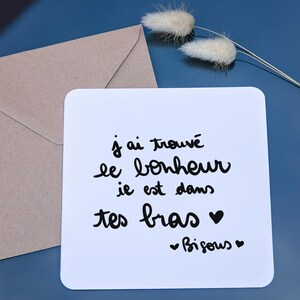 j'ai trouvé
le bonheur
ie est dans
tes bras ♥
♥ Bisous ♥